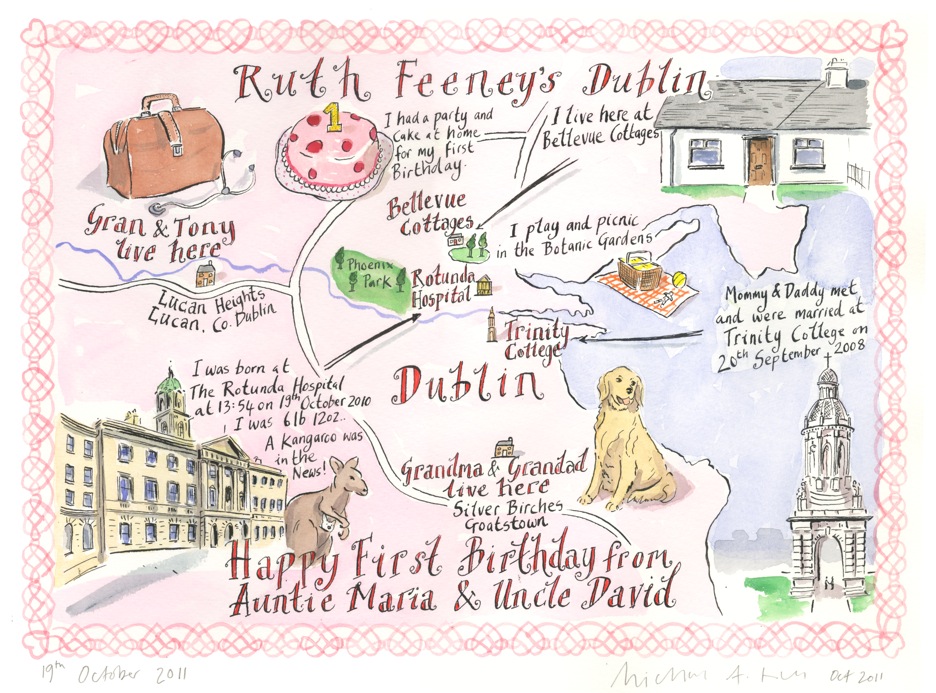 Ruth Feeney's Dublin
1
I had a party and
cake at home
for my first
Birthday.
I live here at
Bellevue Cottages
Gran & Tony
live here
Lucan Heights
Lucan, Co. Dublin
Bellevue
Cottages
I play and picnic
in the Botanic Gardens
Phoenix
Park
Rotunda
Hospital
Trinity
College
Mommy & Daddy met
and were married at
Trinity College on
20th September 2008
Dublin
I was born at
The Rotunda Hospital
at 13:54 on 19th October 2010
I was 6lb 12oz..
A Kangaroo was
in the
News!
Grandma & Grandad
live here
Silver Birches
Goatstown
Happy First Birthday from
Auntie Maria & Uncle David
19th October 2011
A.
Oct 2011